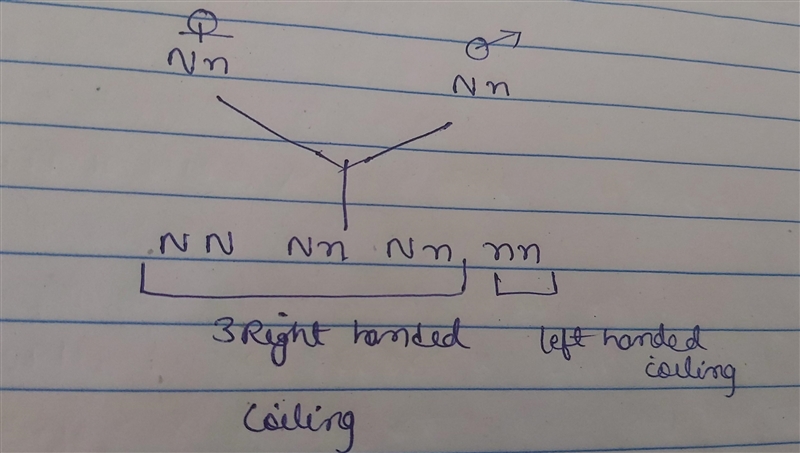 Nn
Nn
NN Nn Nn, nn
3 Right handed
left handed
coiling
Coiling